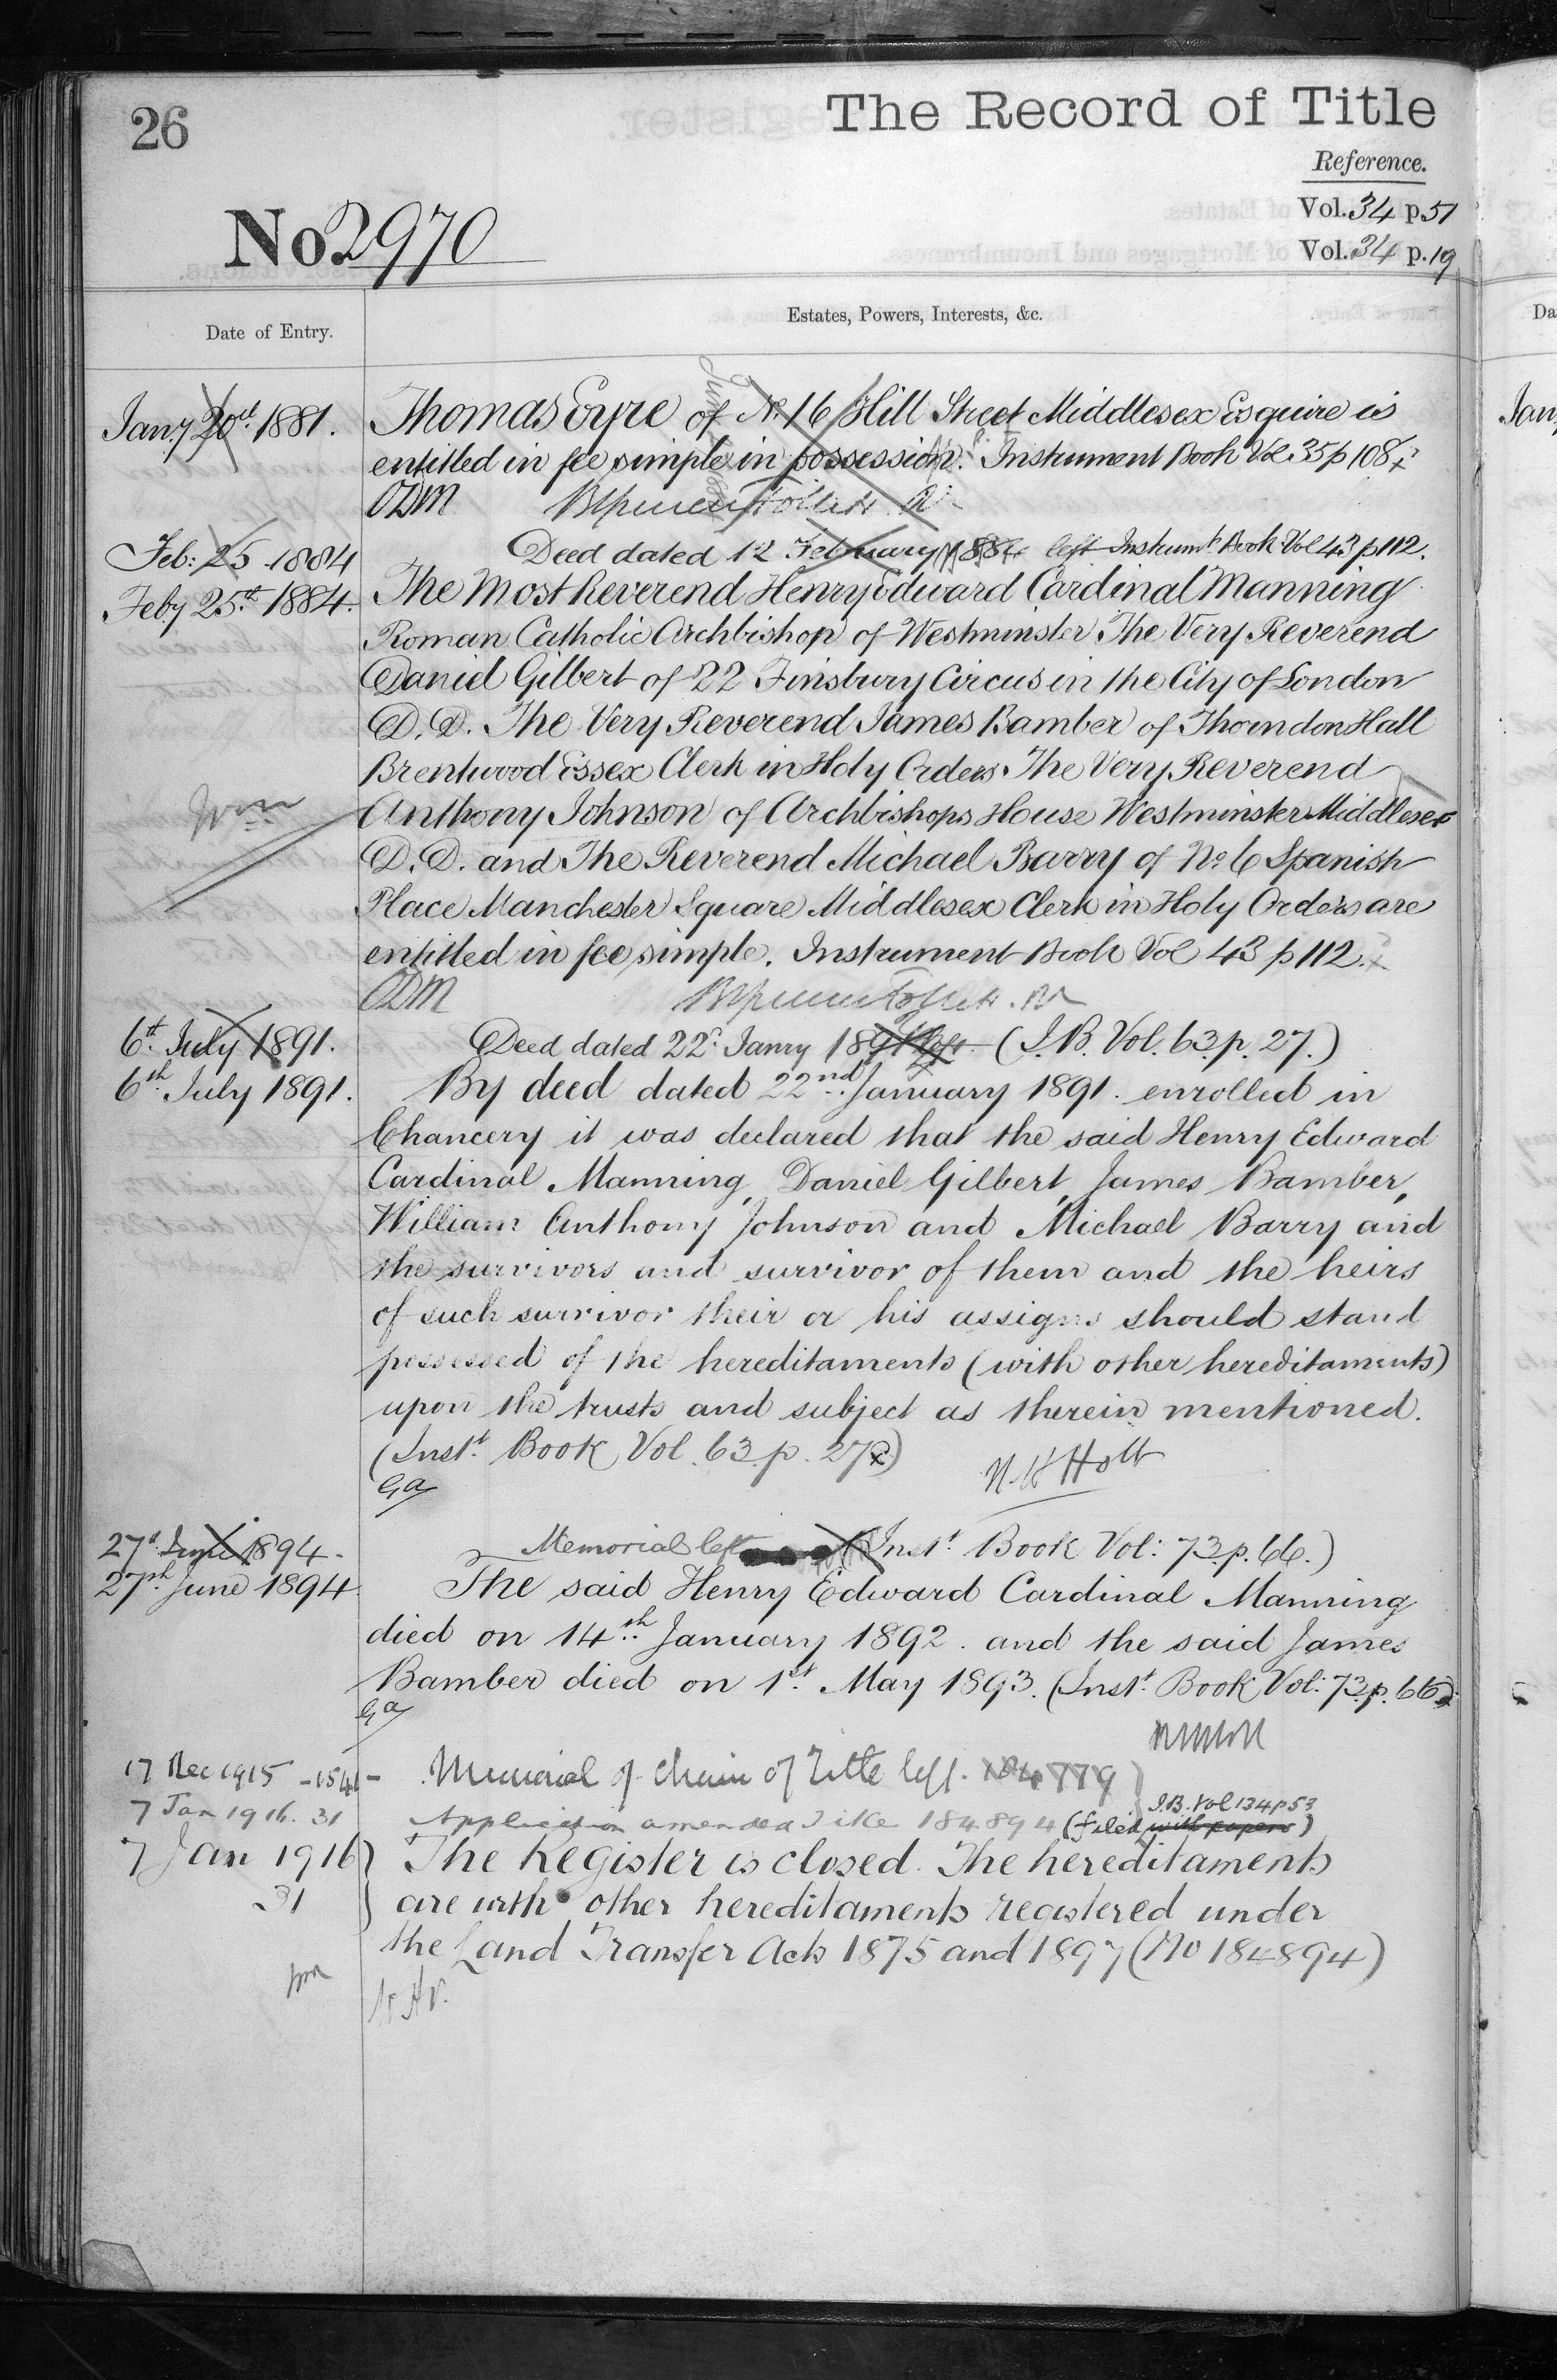 26
The Record of Title
Reference.
Vol. 34 p 51
No 2970
Vol. 34 p. 19
Date of Entry.
Estates, Powers, Interests, &c.
Jany 20th 1881. Thomas Eyre of No. 16 Hill Street Middlesex Esquire is
entitled in fee simple in possession. Instrument Book Vol. 35 p 108
ODM
Feb: 25 1884 Deed dated 12 February 1884 left Instrumt. Book Vol 43 p 112.
Feby 25th 1884. The Most Reverend Henry Edward Cardinal Manning
Roman Catholic Archbishop of Westminster The Very Reverend
Daniel Gilbert of 22 Finsbury Circus in the City of London
D.D. The Very Reverend James Bamber of Thorndon Hall
Brentwood Essex Clerk in Holy Orders The Very Reverend
Anthony Johnson of Archbishops House Westminster Middlesex
D.D. and The Reverend Michael Barry of No 6 Spanish
Place Manchester Square Middlesex Clerk in Holy Orders are
entitled in fee simple. Instrument Book Vol 43 p 112.
ODM
6th July 1891. Deed dated 22d Janry 1891 left (I.B. Vol. 63. p. 27.)
6th July 1891. By deed dated 22nd January 1891. enrolled in
Chancery it was declared that the said Henry Edward
Cardinal Manning, Daniel Gilbert, James Bamber,
William Anthony Johnson and Michael Barry and
the survivors and survivor of them and the heirs
of such survivor their or his assigns should stand
possessed of the hereditaments (with other hereditaments)
upon the trusts and subject as therein mentioned.
(Inst. Book Vol. 63. p. 27)
GA Holt
27th June 1894. Memorial left (Inst. Book Vol: 73. p. 66.)
27th June 1894 The said Henry Edward Cardinal Manning
died on 14th January 1892. and the said James
Bamber died on 1st May 1893. (Inst. Book Vol: 73. p. 66)
GA
17 Dec 1915 Memorial of chain of Title left. No 4779
I.B. Vol 134 p 53
7 Jan 1916. 31 Application amended Title 184894 (filed with papers)
7 Jan 1916 The Register is closed. The hereditaments
31 are with other hereditaments registered under
the Land Transfer Acts 1875 and 1897 (No 184894)